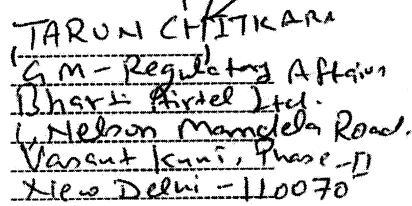 TARUN CHITKARA
GM - Regulatory Affairs
Bharti Airtel Ltd.
1, Nelson Mandela Road.
Vasant Kunj, Phase - II
New Delhi - 110070